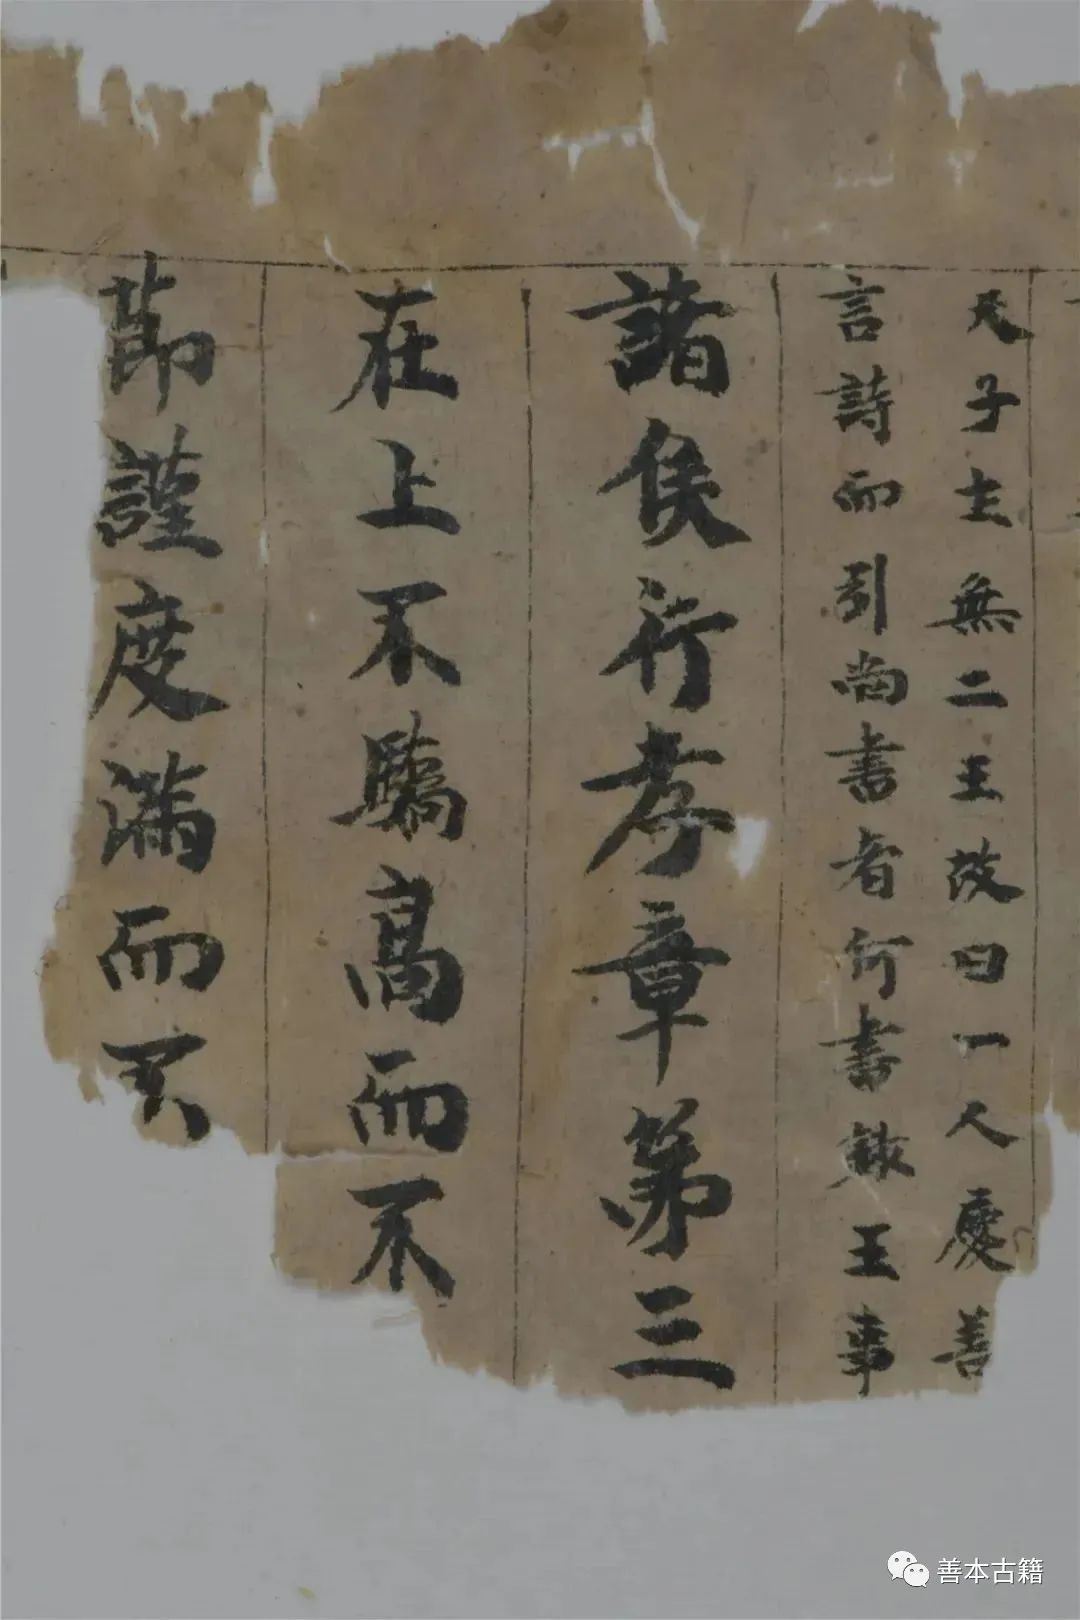 天子土無二王故曰一人慶善
言詩而引尚書者何書錄王事
諸侯行孝章第三
在上不驕高而不
節謹度滿而不
善本古籍